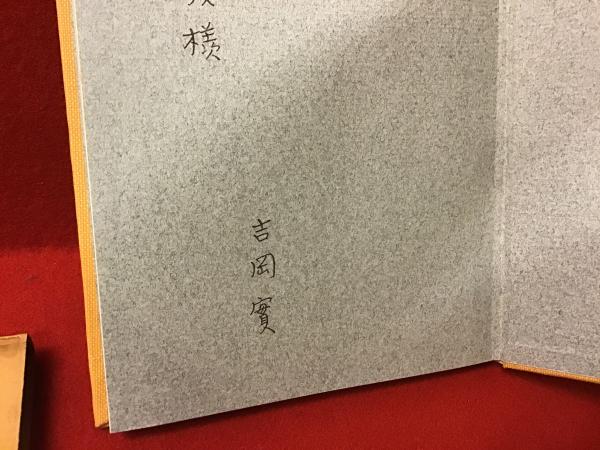 様
吉岡實